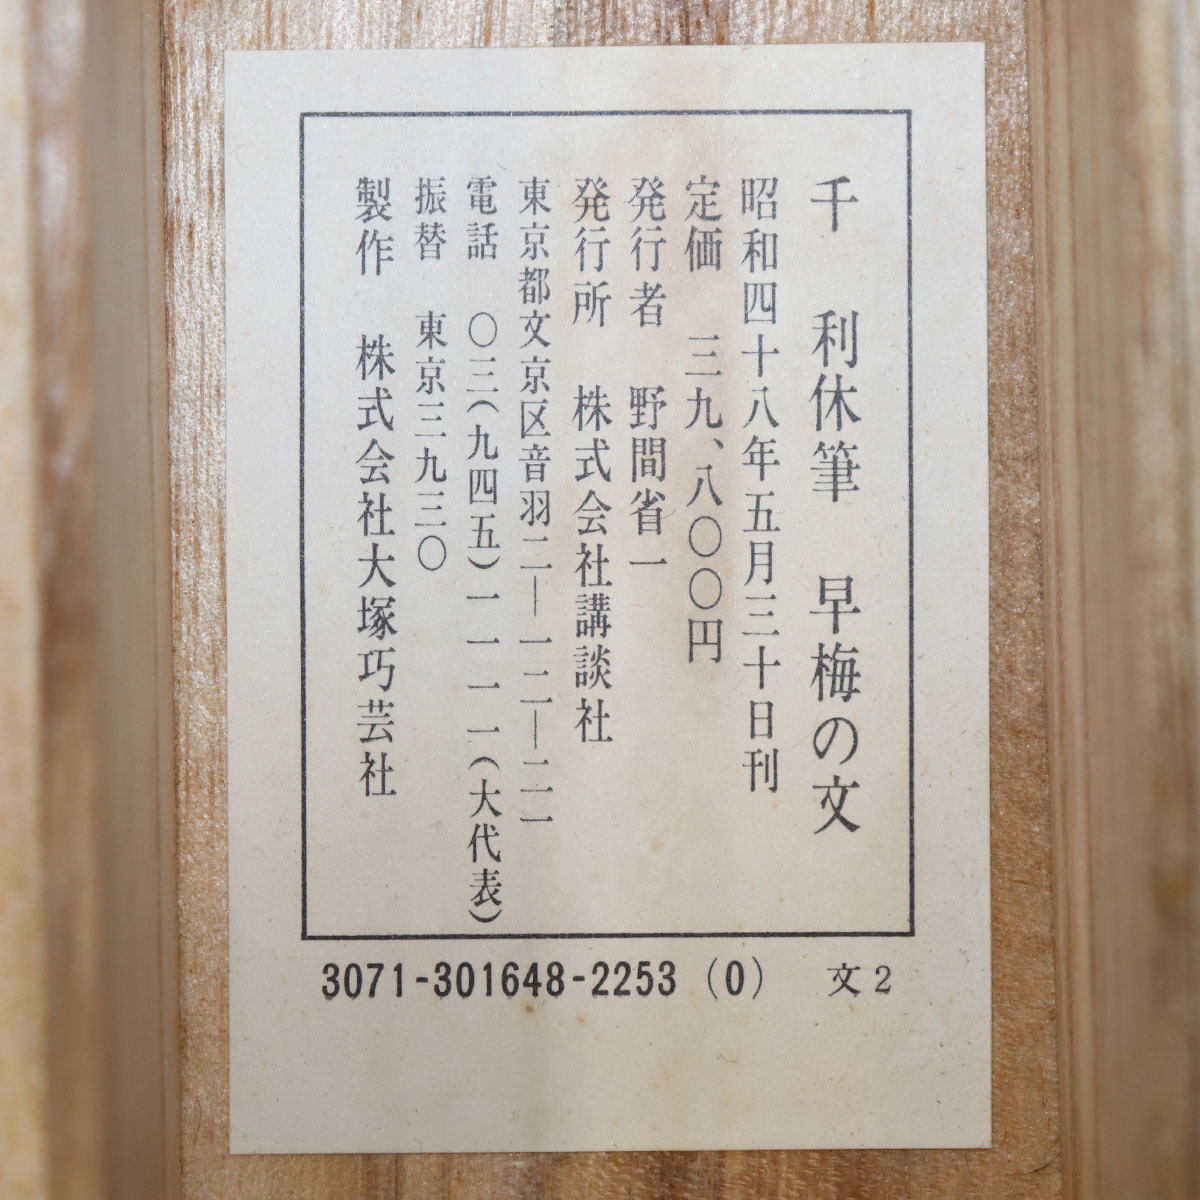 千 利休筆 早梅の文
昭和四十八年五月三十日刊
定価 三九、八〇〇円
発行者 野間省一
発行所 株式会社講談社
東京都文京区音羽二―一二―二一
電話 〇三(九四五)一一一一(大代表)
振替 東京三九三〇
製作 株式会社大塚巧芸社
3071-301648-2253 (0) 文2